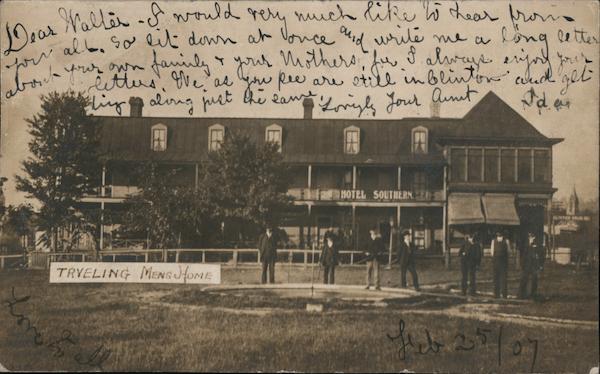 Dear Walter - I would very much like to hear from
you all. So sit down at once and write me a long letter
about your own family & your Mothers, for I always enjoy your
letters. We as you see are still in Clinton and get
ing along just the same Lovingly Your Aunt Ida
HOTEL SOUTHERN.
TRVELING MENS HOME
Love to all
Feb 25/07